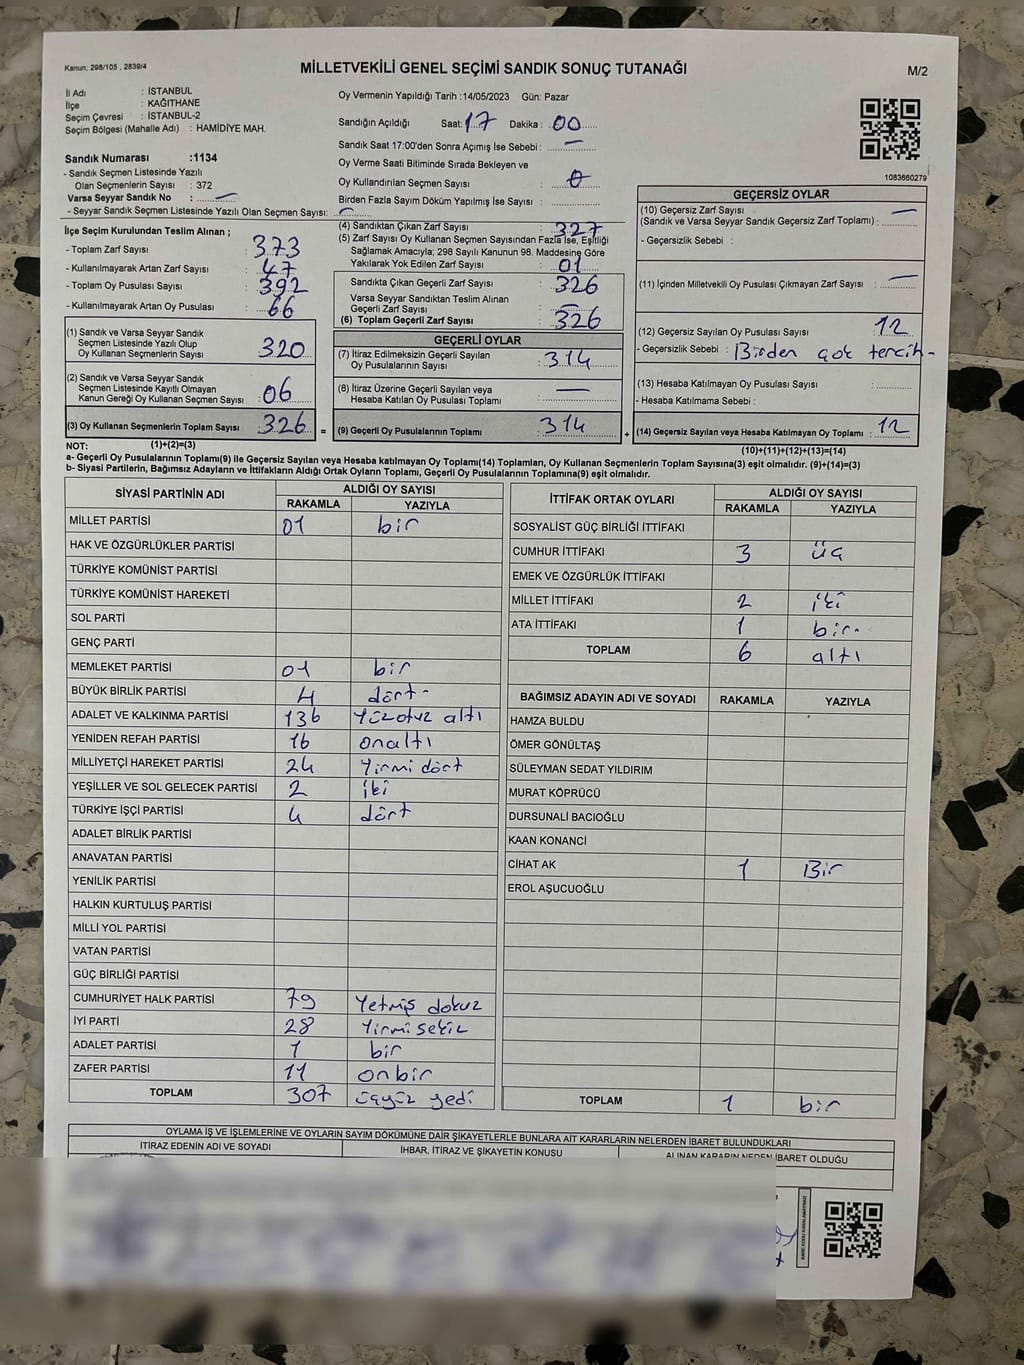 Kanun; 298/105 , 2839/4
MİLLETVEKİLİ GENEL SEÇİMİ SANDIK SONUÇ TUTANAĞI
M/2
İl Adı : İSTANBUL
İlçe : KAĞITHANE
Seçim Çevresi : İSTANBUL-2
Seçim Bölgesi (Mahalle Adı) : HAMİDİYE MAH.
Sandık Numarası :1134
- Sandık Seçmen Listesinde Yazılı
Olan Seçmenlerin Sayısı : 372
Varsa Seyyar Sandık No : —
- Seyyar Sandık Seçmen Listesinde Yazılı Olan Seçmen Sayısı: —
Oy Vermenin Yapıldığı Tarih :14/05/2023 Gün: Pazar
Sandığın Açıldığı Saat: 17 Dakika : 00
Sandık Saat 17:00'den Sonra Açımış İse Sebebi : —
Oy Verme Saati Bitiminde Sırada Bekleyen ve
Oy Kullandırılan Seçmen Sayısı : 0
Birden Fazla Sayım Döküm Yapılmış İse Sayısı :
1083660279
İlçe Seçim Kurulundan Teslim Alınan ;
- Toplam Zarf Sayısı : 373
- Kullanılmayarak Artan Zarf Sayısı : 47
- Toplam Oy Pusulası Sayısı : 392
- Kullanılmayarak Artan Oy Pusulası : 66
(1) Sandık ve Varsa Seyyar Sandık
Seçmen Listesinde Yazılı Olup
Oy Kullanan Seçmenlerin Sayısı : 320
(2) Sandık ve Varsa Seyyar Sandık
Seçmen Listesinde Kayıtlı Olmayan
Kanun Gereği Oy Kullanan Seçmen Sayısı : 06
(3) Oy Kullanan Seçmenlerin Toplam Sayısı : 326 =
(4) Sandıktan Çıkan Zarf Sayısı : 327
(5) Zarf Sayısı Oy Kullanan Seçmen Sayısından Fazla İse, Eşitliği
Sağlamak Amacıyla; 298 Sayılı Kanunun 98. Maddesine Göre
Yakılarak Yok Edilen Zarf Sayısı : 01
Sandıkta Çıkan Geçerli Zarf Sayısı : 326
Varsa Seyyar Sandıktan Teslim Alınan
Geçerli Zarf Sayısı : —
(6) Toplam Geçerli Zarf Sayısı : 326
GEÇERLİ OYLAR
(7) İtiraz Edilmeksizin Geçerli Sayılan
Oy Pusulalarının Sayısı : 314
(8) İtiraz Üzerine Geçerli Sayılan veya
Hesaba Katılan Oy Pusulası Toplamı : —
(9) Geçerli Oy Pusulalarının Toplamı : 314 +
GEÇERSİZ OYLAR
(10) Geçersiz Zarf Sayısı —
(Sandık ve Varsa Seyyar Sandık Geçersiz Zarf Toplamı) :
- Geçersizlik Sebebi :
(11) İçinden Milletvekili Oy Pusulası Çıkmayan Zarf Sayısı : —
(12) Geçersiz Sayılan Oy Pusulası Sayısı : 12
- Geçersizlik Sebebi : Birden çok tercih-
(13) Hesaba Katılmayan Oy Pusulası Sayısı :
- Hesaba Katılmama Sebebi :
(14) Geçersiz Sayılan veya Hesaba Katılmayan Oy Toplamı : 12
NOT: (1)+(2)=(3) (10)+(11)+(12)+(13)=(14)
a- Geçerli Oy Pusulalarının Toplamı(9) ile Geçersiz Sayılan veya Hesaba katılmayan Oy Toplamı(14) Toplamları, Oy Kullanan Seçmenlerin Toplam Sayısına(3) eşit olmalıdır. (9)+(14)=(3)
b- Siyasi Partilerin, Bağımsız Adayların ve İttifakların Aldığı Ortak Oyların Toplamı, Geçerli Oy Pusulalarının Toplamına(9) eşit olmalıdır.
SİYASİ PARTİNİN ADI ALDIĞI OY SAYISI
RAKAMLA YAZIYLA
MİLLET PARTİSİ 01 bir
HAK VE ÖZGÜRLÜKLER PARTİSİ
TÜRKİYE KOMÜNİST PARTİSİ
TÜRKİYE KOMÜNİST HAREKETİ
SOL PARTİ
GENÇ PARTİ
MEMLEKET PARTİSİ 01 bir
BÜYÜK BİRLİK PARTİSİ 4 dört-
ADALET VE KALKINMA PARTİSİ 136 Yüzotuz altı
YENİDEN REFAH PARTİSİ 16 onaltı
MİLLİYETÇİ HAREKET PARTİSİ 24 Yirmi dört
YEŞİLLER VE SOL GELECEK PARTİSİ 2 iki
TÜRKİYE İŞÇİ PARTİSİ 4 dört
ADALET BİRLİK PARTİSİ
ANAVATAN PARTİSİ
YENİLİK PARTİSİ
HALKIN KURTULUŞ PARTİSİ
MİLLİ YOL PARTİSİ
VATAN PARTİSİ
GÜÇ BİRLİĞİ PARTİSİ
CUMHURİYET HALK PARTİSİ 79 Yetmiş dokuz
İYİ PARTİ 28 Yirmi sekiz
ADALET PARTİSİ 1 bir
ZAFER PARTİSİ 11 onbir
TOPLAM 307 üçyüz yedi
İTTİFAK ORTAK OYLARI ALDIĞI OY SAYISI
RAKAMLA YAZIYLA
SOSYALİST GÜÇ BİRLİĞİ İTTİFAKI
CUMHUR İTTİFAKI 3 üç
EMEK VE ÖZGÜRLÜK İTTİFAKI
MİLLET İTTİFAKI 2 iki
ATA İTTİFAKI 1 bir-
TOPLAM 6 altı
BAĞIMSIZ ADAYIN ADI VE SOYADI RAKAMLA YAZIYLA
HAMZA BULDU
ÖMER GÖNÜLTAŞ
SÜLEYMAN SEDAT YILDIRIM
MURAT KÖPRÜCÜ
DURSUNALİ BACIOĞLU
KAAN KONANCİ
CİHAT AK 1 Bir
EROL AŞUCUOĞLU
TOPLAM 1 bir
OYLAMA İŞ VE İŞLEMLERİNE VE OYLARIN SAYIM DÖKÜMÜNE DAİR ŞİKAYETLERLE BUNLARA AİT KARARLARIN NELERDEN İBARET BULUNDUKLARI
İTİRAZ EDENİN ADI VE SOYADI İHBAR, İTİRAZ VE ŞİKAYETİN KONUSU ALINAN KARARIN NEDEN İBARET OLDUĞU